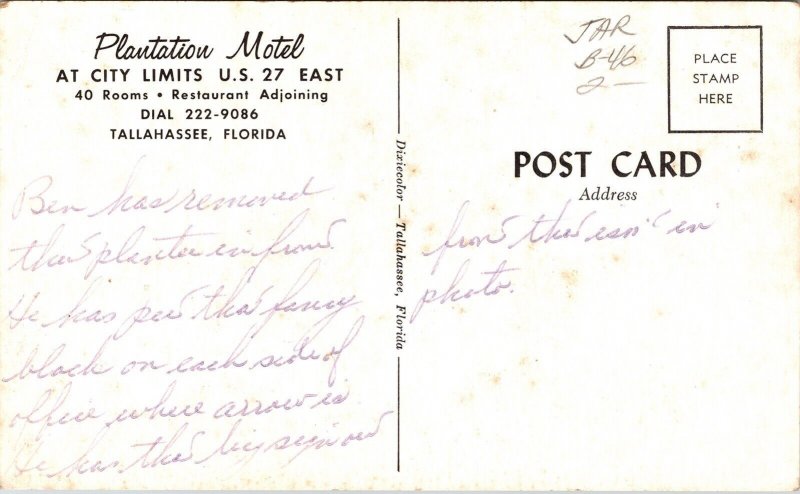 Plantation Motel
AT CITY LIMITS U.S. 27 EAST
40 Rooms • Restaurant Adjoining
DIAL 222-9086
TALLAHASSEE, FLORIDA
Ben has removed
the planter in front.
He has put the fancy
block on each side of
office where arrow is
He has the big sign out
Dixiecolor — Tallahassee, Florida
JAR
B-46
2—
PLACE
STAMP
HERE
POST CARD
Address
front the in
photo.